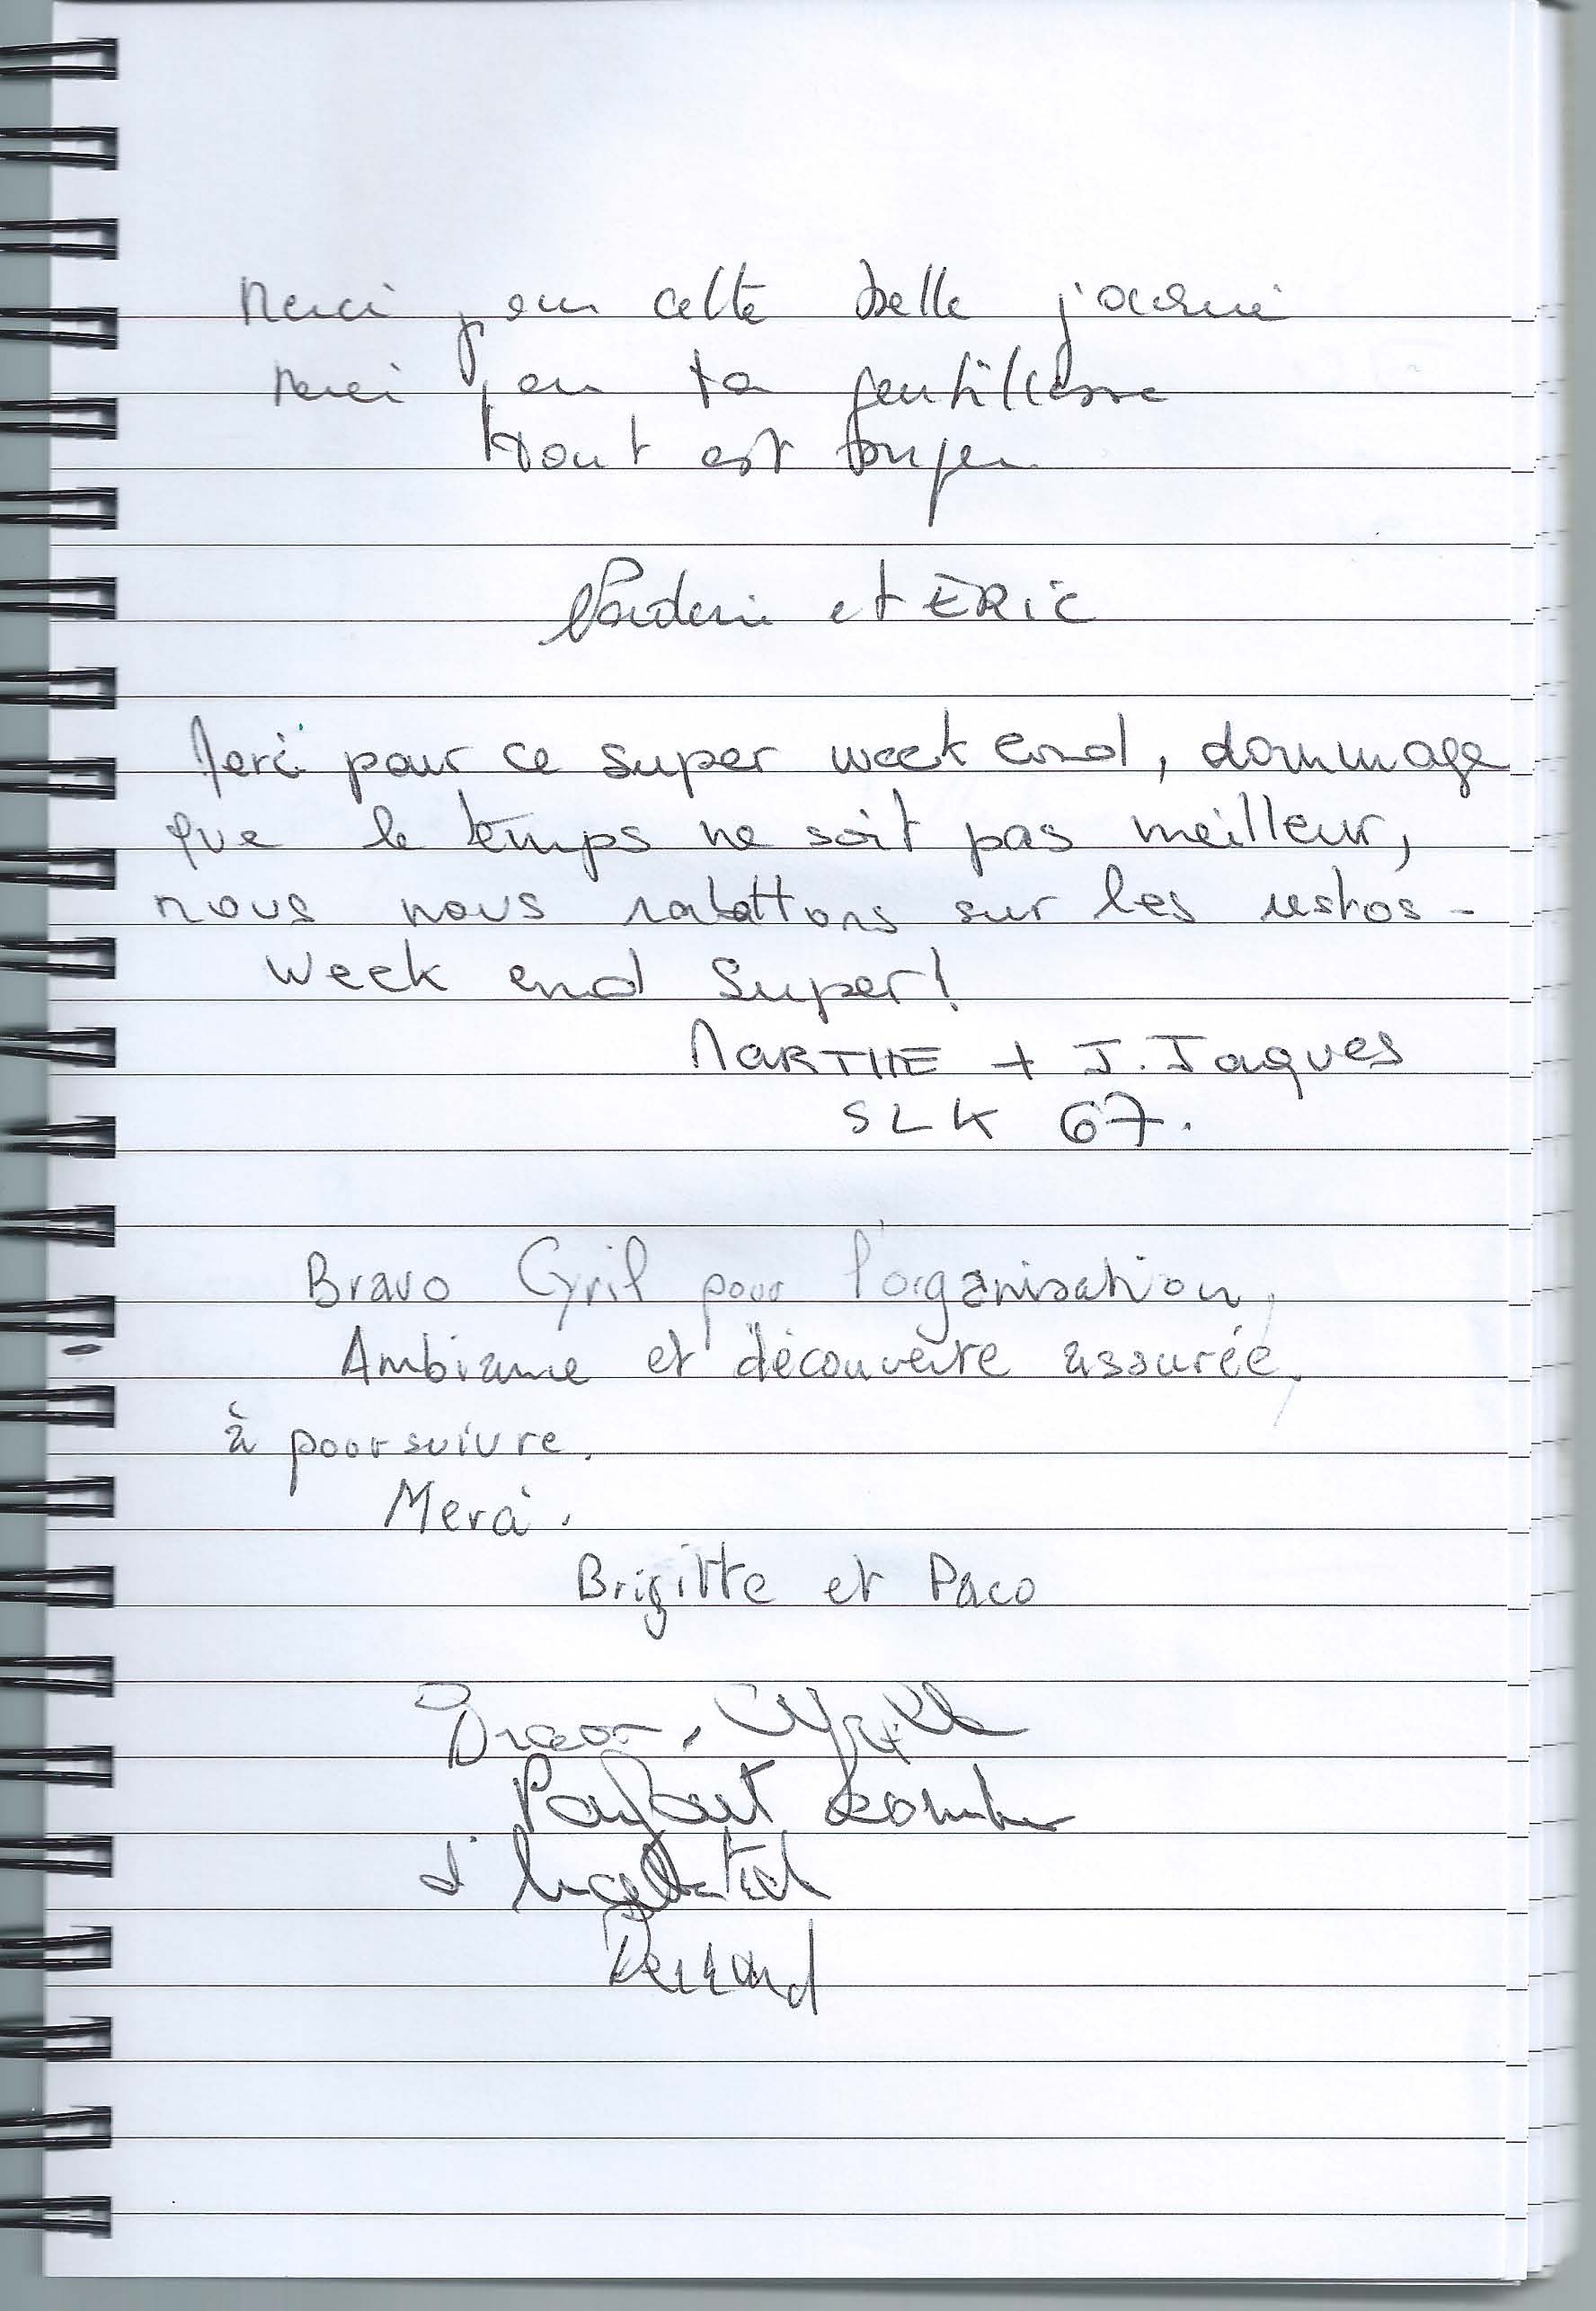 Merci pour cette belle journée
Merci pour ta gentillesse
tout est
et ERIC
Merci pour ce super week end, dommage
que le temps ne soit pas meilleur,
nous nous rabattons sur les restos -
Week end Super!
MARTHE + J. Jaques
SLK 67.
Bravo Cyril pour l'organisation,
Ambiance et découverte assurée,
à poursuivre.
Merci.
Brigitte et Paco
Parfait
d'
Bernard